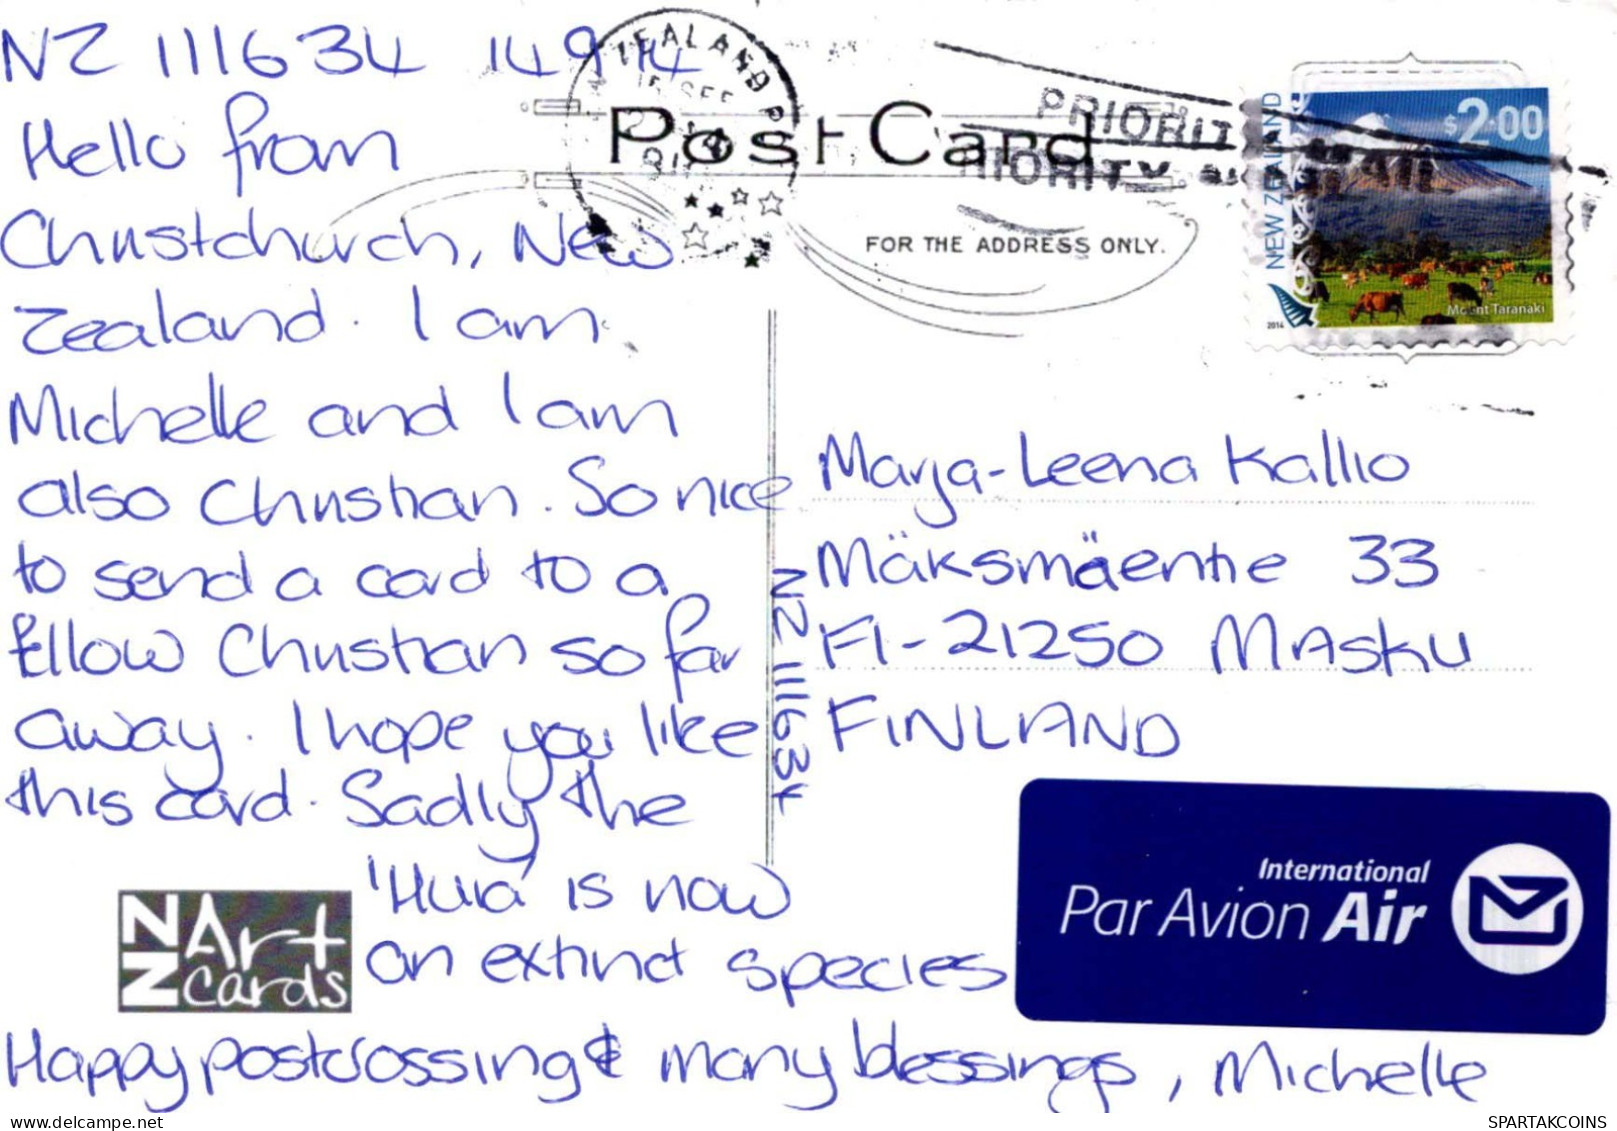 NZ 111634 14 9 14
Hello from
Christchurch, New
Zealand. I am
Michelle and I am
also Christian. So nice
to send a card to a
fellow Christian so far
away. I hope you like
this card. Sadly the
'Huia' is now
an extinct species
Happy postcrossing & many blessings, Michelle
NZ Art Cards
NZ 111634
Post Card
FOR THE ADDRESS ONLY.
ZEALAND P
15 SEP
PRIORIT
PRIORITY MAIL
NEW ZEALAND
$2.00
Mount Taranaki
2014
Marja-Leena Kallio
Mäksmäentie 33
FI-21250 MASKU
FINLAND
International
Par Avion Air
delcampe.net
SPARTAKCOINS